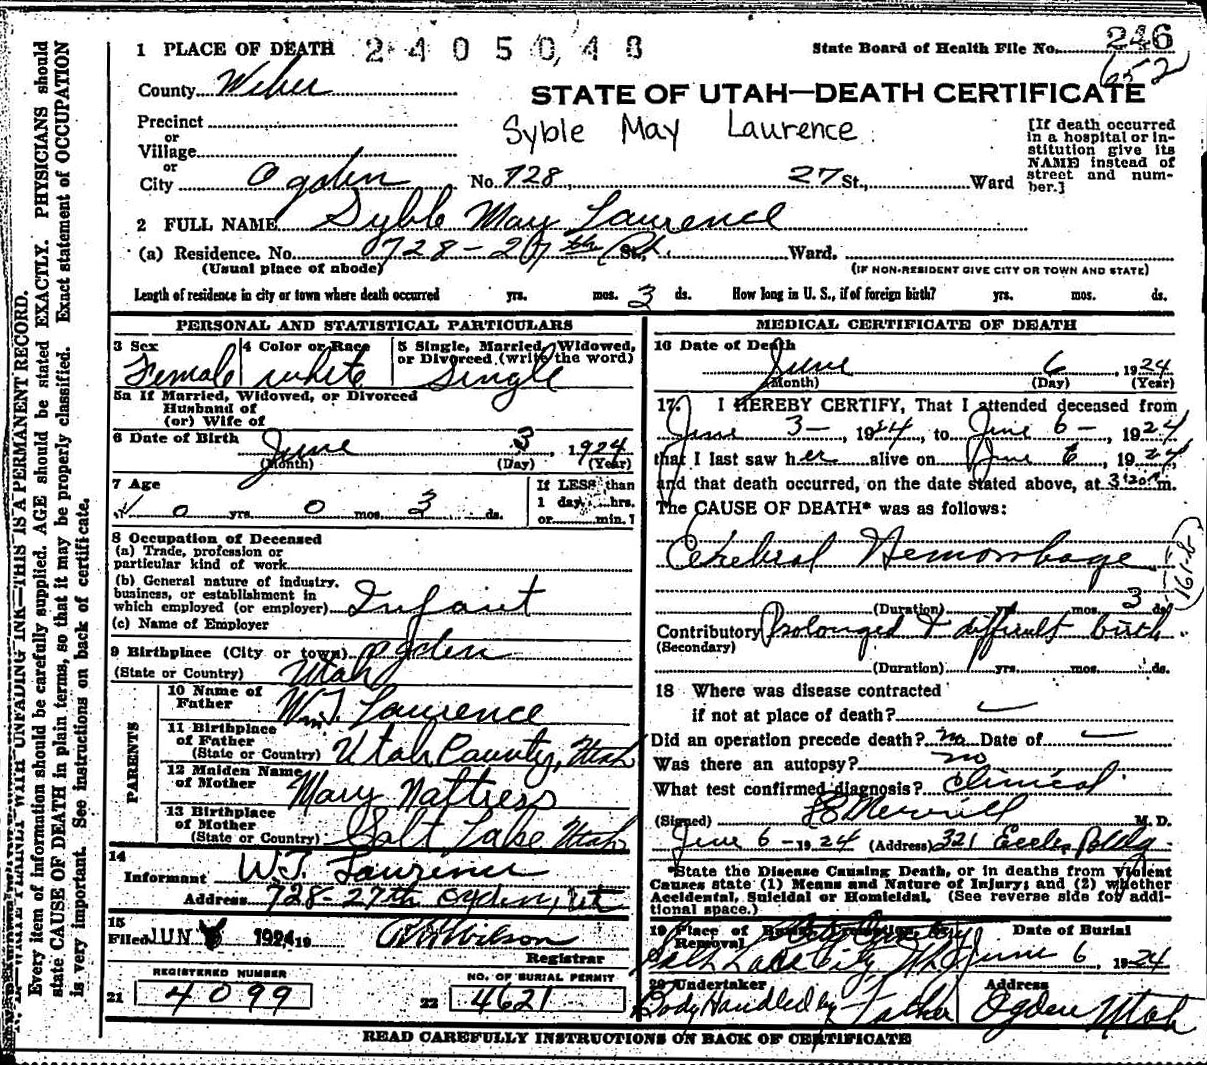 1 PLACE OF DEATH 2405048 State Board of Health File No. 246
652
County Weber
STATE OF UTAH—DEATH CERTIFICATE
Precinct
or
Village
or
City Ogden No. 728, 27 St., Ward
Syble May Laurence
[If death occurred in a hospital or institution give its NAME instead of street and number.]
2 FULL NAME Syble May Laurence
(a) Residence. No. 728 - 27th St. Ward.
(Usual place of abode) (IF NON-RESIDENT GIVE CITY OR TOWN AND STATE)
Length of residence in city or town where death occurred yrs. mos. 3 ds. How long in U. S., if of foreign birth? yrs. mos. ds.
PERSONAL AND STATISTICAL PARTICULARS
3 Sex Female
4 Color or Race white
5 Single, Married, Widowed, or Divorced (write the word) Single
5a If Married, Widowed, or Divorced
Husband of
(or) Wife of
6 Date of Birth June 3, 1924
(Month) (Day) (Year)
7 Age 0 yrs. 0 mos. 3 ds.
If LESS than
1 day, hrs.
or min.?
8 Occupation of Deceased
(a) Trade, profession or
particular kind of work
(b) General nature of industry.
business, or establishment in
which employed (or employer) Infant
(c) Name of Employer
9 Birthplace (City or town) Ogden
(State or Country) Utah
PARENTS
10 Name of Father Wm. T. Laurence
11 Birthplace of Father (State or Country) Utah County, Utah
12 Maiden Name of Mother Mary Nattress
13 Birthplace of Mother (State or Country) Salt Lake Utah
14
Informant W.T. Laurence
Address 728-27th Ogden, Ut
15
Filed JUN 1924 19 Wilson
Registrar
REGISTERED NUMBER
21 4099
NO. OF BURIAL PERMIT
22 4621
MEDICAL CERTIFICATE OF DEATH
16 Date of Death June 6, 1924
(Month) (Day) (Year)
17. I HEREBY CERTIFY, That I attended deceased from
June 3-, 1924, to June 6-, 1924
that I last saw her alive on June 6, 1924,
and that death occurred, on the date stated above, at 3:20 m.
The CAUSE OF DEATH* was as follows:
Cerebral Hemorrhage
161-B
(Duration) yrs. mos. 3 ds.
Contributory Prolonged & difficult birth
(Secondary)
(Duration) yrs. mos. ds.
18 Where was disease contracted
if not at place of death?
Did an operation precede death? no Date of
Was there an autopsy? no
What test confirmed diagnosis? Clinical
(Signed) Merrill M. D.
June 6 - 1924 (Address) 321 Eccles Bldg
*State the Disease Causing Death, or in deaths from Violent
Causes state (1) Means and Nature of Injury; and (2) whether
Accidental, Suicidal or Homicidal. (See reverse side for additional space.)
19 Place of Burial, Cremation, or Removal Salt Lake City
Date of Burial June 6, 1924
20 Undertaker Body Handled by Father
Address Ogden Utah
READ CAREFULLY INSTRUCTIONS ON BACK OF CERTIFICATE
THIS IS A PERMANENT RECORD.
Every item of information should be carefully supplied. AGE should be stated EXACTLY. PHYSICIANS should
state CAUSE OF DEATH in plain terms, so that it may be properly classified. Exact statement of OCCUPATION
is very important. See instructions on back of certificate.